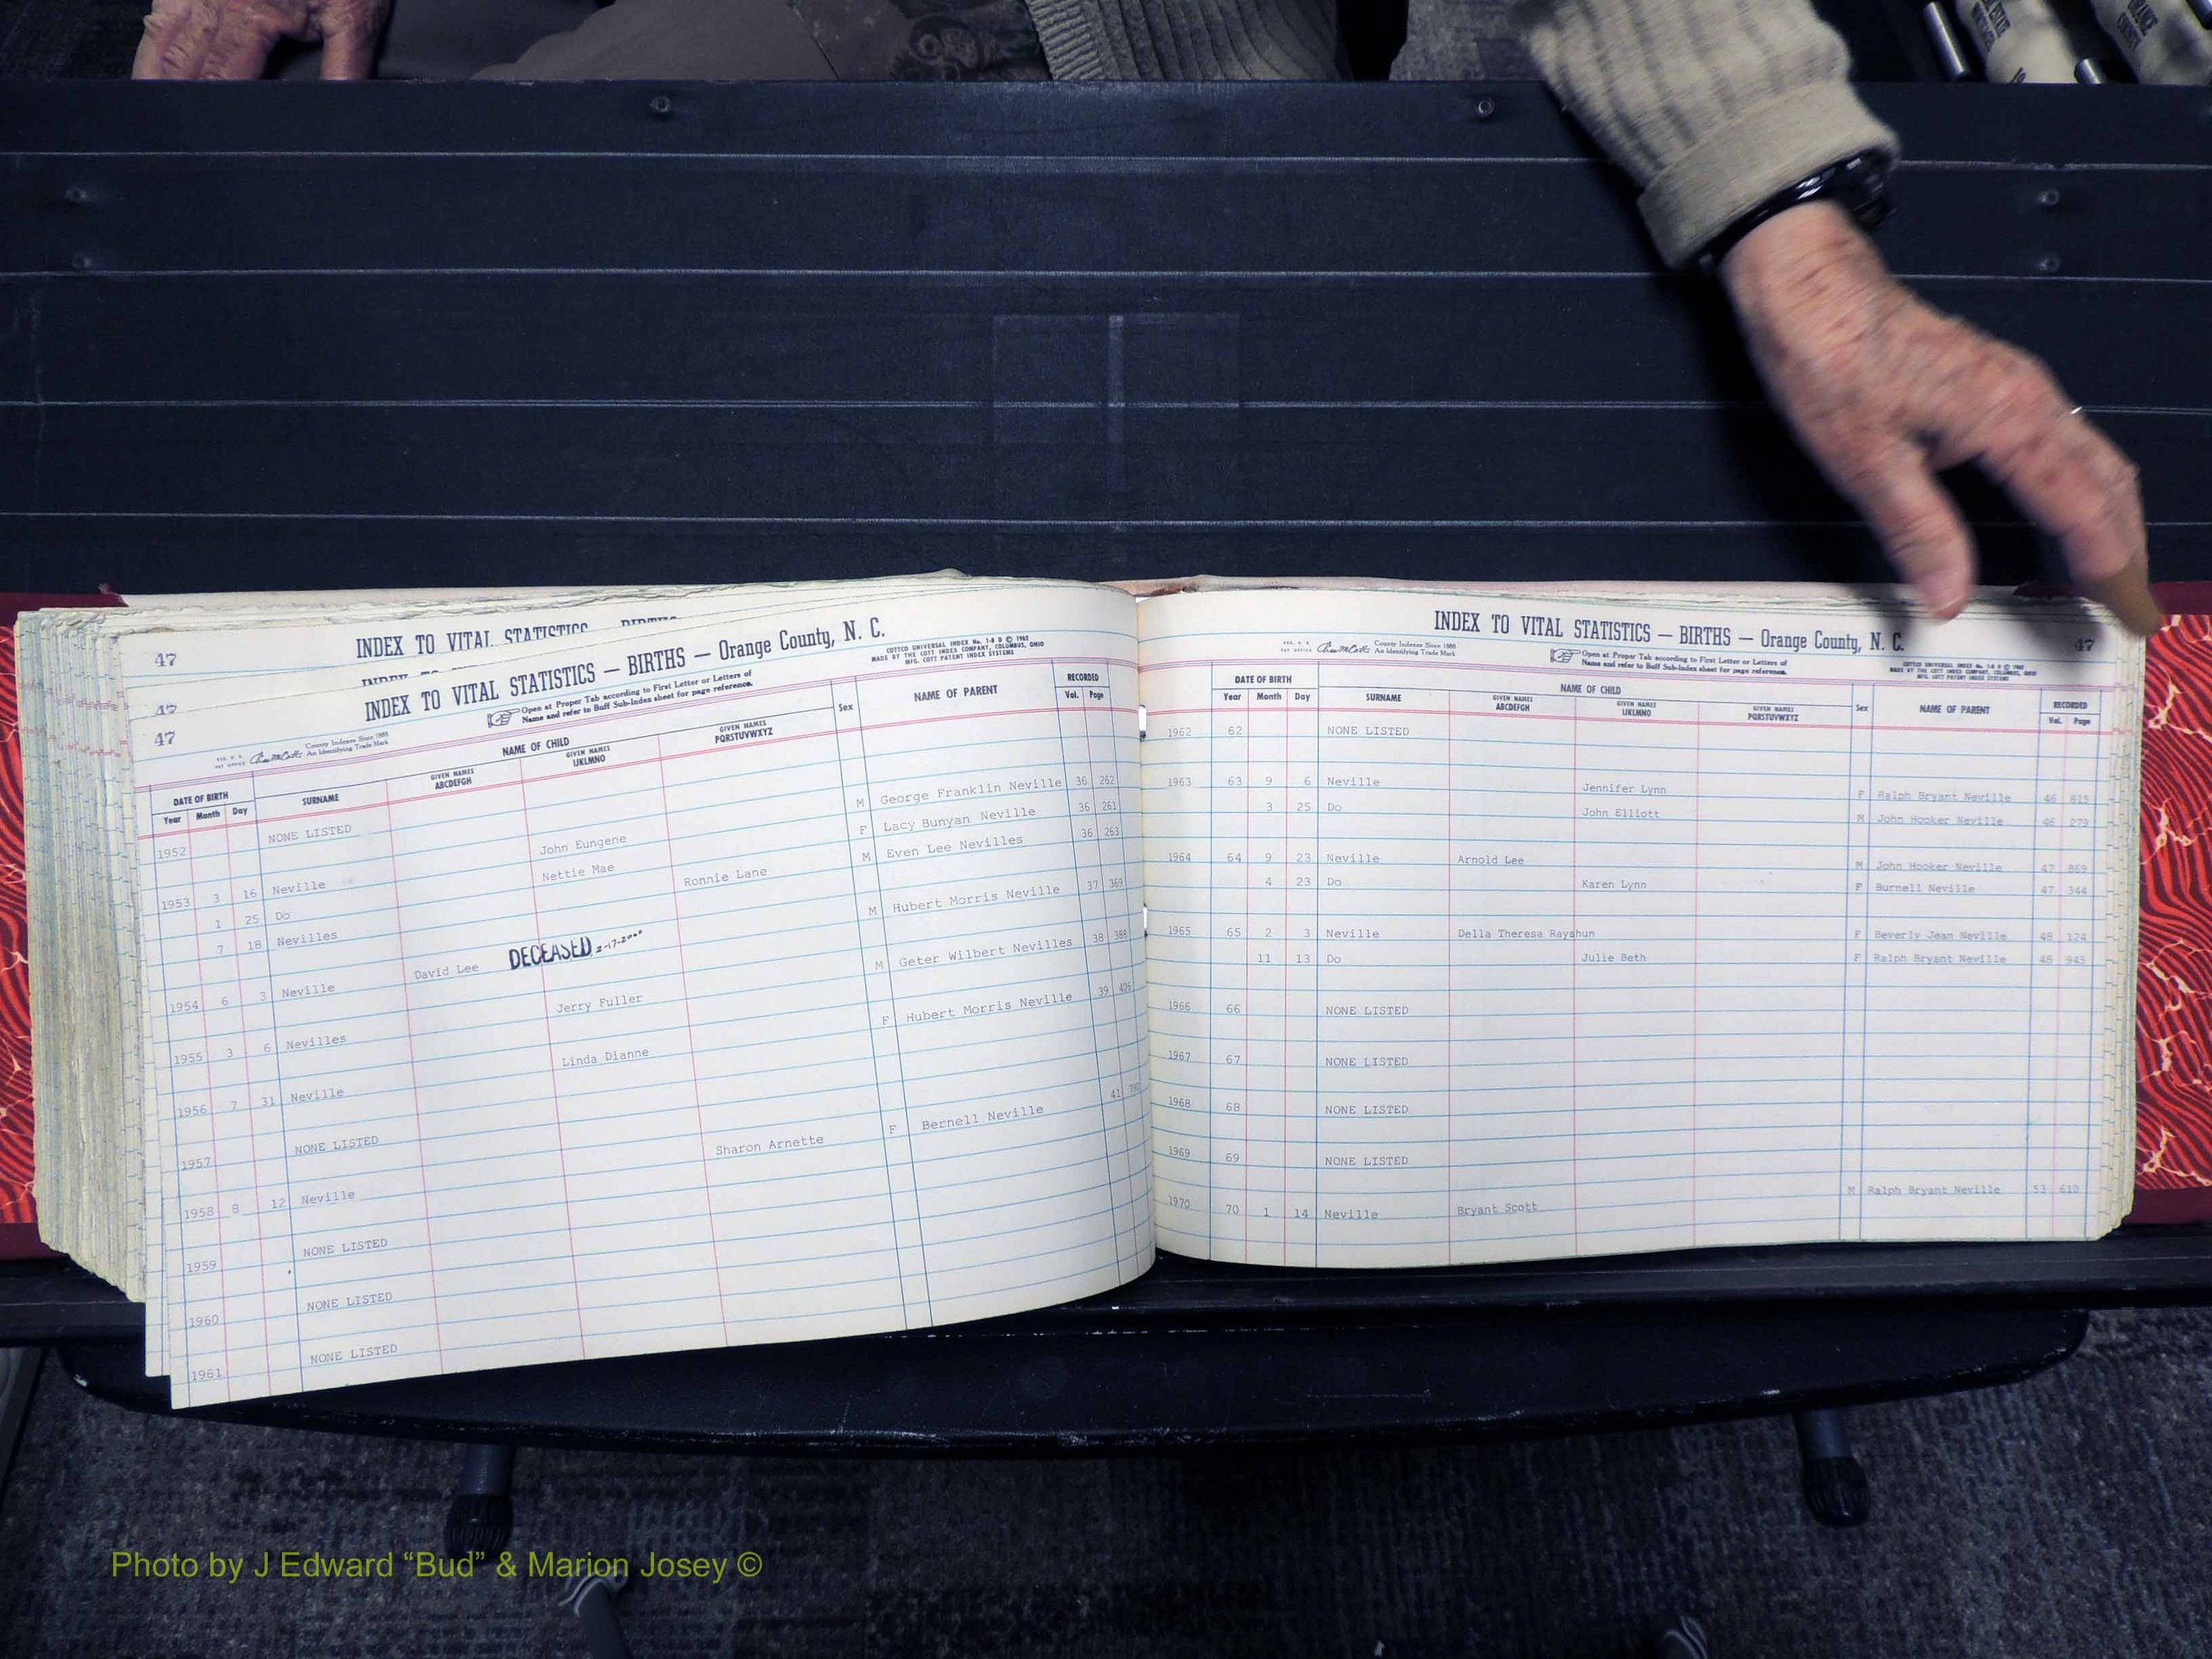 47 INDEX TO VITAL STATISTICS
47 INDEX TO VITAL STATISTICS — BIRTHS — Orange County, N. C.
COTTCO UNIVERSAL INDEX No. 1-8 D © 1962
MADE BY THE COTT INDEX COMPANY, COLUMBUS, OHIO
MFG. COTT PATENT INDEX SYSTEMS
County Indexes Since 1888
An Identifying Trade Mark
Open at Proper Tab according to First Letter or Letters of
Name and refer to Buff Sub-Index sheet for page reference.
DATE OF BIRTH NAME OF CHILD Sex NAME OF PARENT RECORDED
Year Month Day SURNAME GIVEN NAMES ABCDEFGH GIVEN NAMES IJKLMNO GIVEN NAMES PQRSTUVWXYZ Vol. Page
1952 NONE LISTED
1953 3 16 Neville John Eungene M George Franklin Neville 36 262
1 25 Do Nettie Mae F Lacy Bunyan Neville 36 261
7 18 Nevilles Ronnie Lane M Even Lee Nevilles 36 263
1954 6 3 Neville David Lee DECEASED M Hubert Morris Neville 37 369
1955 3 6 Nevilles Jerry Fuller M Geter Wilbert Nevilles 38 388
1956 7 31 Neville Linda Dianne F Hubert Morris Neville 39 406
1957 NONE LISTED
1958 8 12 Neville Sharon Arnette F Bernell Neville 41
1959 NONE LISTED
1960 NONE LISTED
1961 NONE LISTED
INDEX TO VITAL STATISTICS — BIRTHS — Orange County, N. C. 47
County Indexes Since 1888
An Identifying Trade Mark
Open at Proper Tab according to First Letter or Letters of
Name and refer to Buff Sub-Index sheet for page reference.
DATE OF BIRTH NAME OF CHILD Sex NAME OF PARENT RECORDED
Year Month Day SURNAME GIVEN NAMES ABCDEFGH GIVEN NAMES IJKLMNO GIVEN NAMES PQRSTUVWXYZ Vol. Page
1962 62 NONE LISTED
1963 63 9 6 Neville Jennifer Lynn F Ralph Bryant Neville 46 815
3 25 Do John Elliott M John Hooker Neville 46 279
1964 64 9 23 Neville Arnold Lee M John Hooker Neville 47 869
4 23 Do Karen Lynn F Burnell Neville 47 344
1965 65 2 3 Neville Della Theresa Rayshun F Beverly Jean Neville 48 124
11 13 Do Julie Beth F Ralph Bryant Neville 48 945
1966 66 NONE LISTED
1967 67 NONE LISTED
1968 68 NONE LISTED
1969 69 NONE LISTED
1970 70 1 14 Neville Bryant Scott M Ralph Bryant Neville 53 610
Photo by J Edward “Bud” & Marion Josey ©